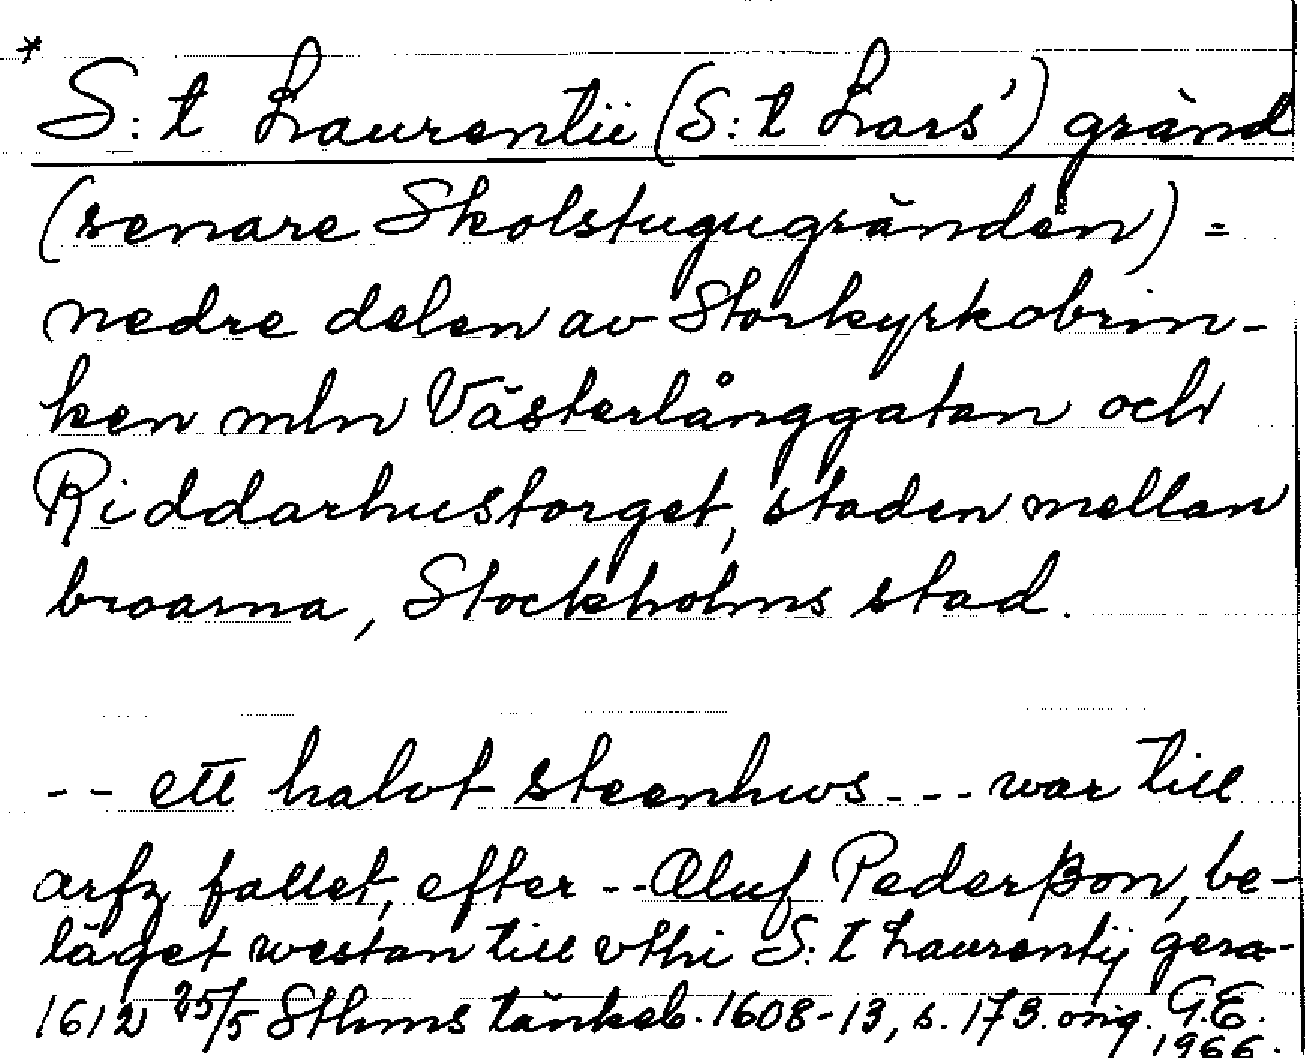 *
S:t Laurentii (S:t Lars') gränd
(senare Skolstugugränden) =
nedre delen av Storkyrkobrin-
ken mln Västerlånggatan och
Riddarhustorget, staden mellan
broarna, Stockholms stad.
-- ett halvt steenhws --- war till
arfz fallet, efter -- Oluf Pederßon, be-
läget westan till vthi S:t Laurentij gera-
1612 25/5 Sthms tänkeb. 1608-13, s. 173. orig. G.E.
1966.